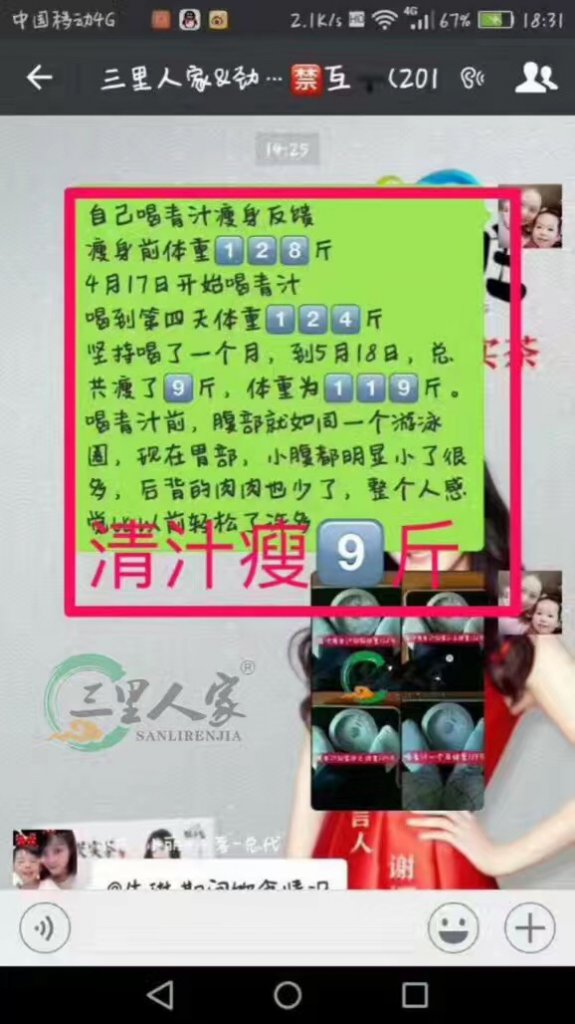 中国移动4G
2.1K/s HD 4G 67% 18:31
三里人家&劲…禁互 (201
14:25
自己喝青汁瘦身反馈
瘦身前体重128斤
4月17日开始喝青汁
喝到第四天体重124斤
坚持喝了一个月，到5月18日，总
共瘦了9斤，体重为119斤。
喝青汁前，腹部就如同一个游泳
圈，现在胃部，小腹都明显小了很
多，后背的肉肉也少了，整个人感
觉比以前轻松了许多
清汁瘦9斤
买茶
三里人家®
SANLIRENJIA
言人
谢